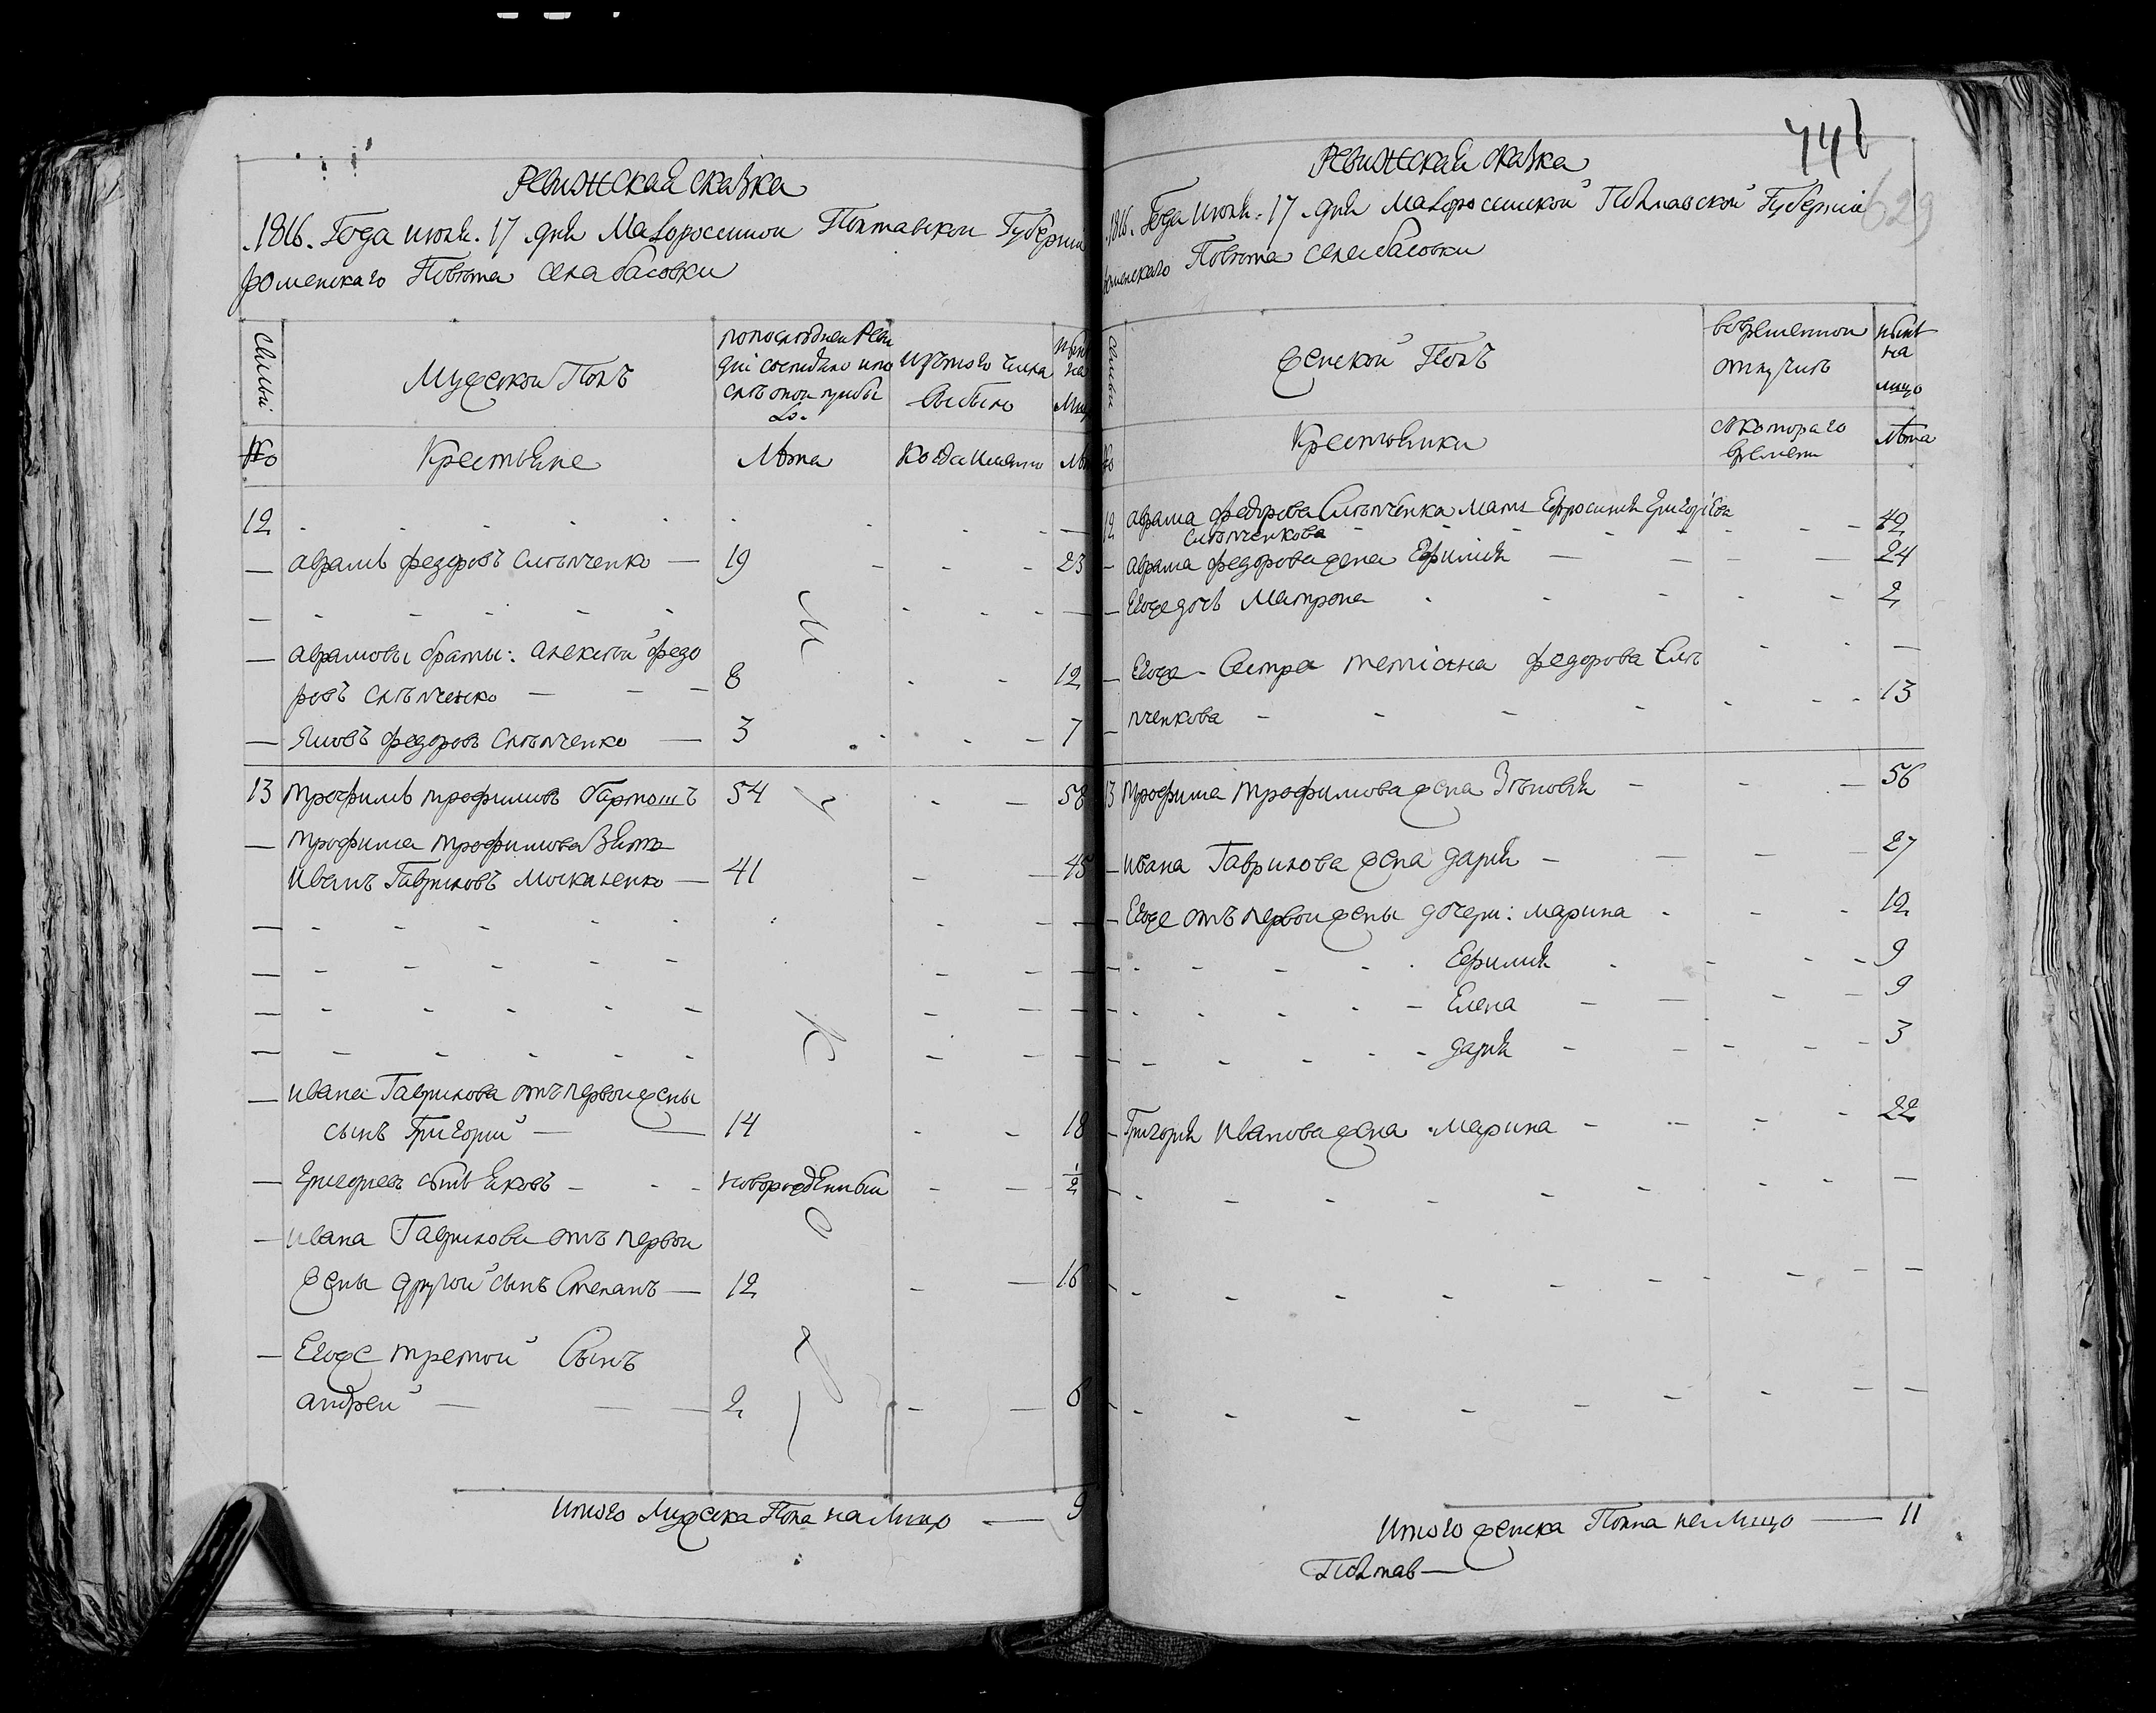 Ревижская сказка
1816. Года июля. 17 дня Малоросииской Полтавской Губернии
роменскаго Повѣта села басовки
Семьи
Мужской Полъ
попоследней Реви
зіи состояло ипо
слѣ оной прибы
ло.
Изътого числа
выбыло
ныне
на
Лицо
№
Крестьяне
Лѣта
Когда имянно
Лѣта
12
аврамъ федоровъ слѣпченко — 19 23
аврамовы браты: алексѣй федо
ровъ слѣпченко — 8 12
Яковъ федоровъ слѣпченко — 3 7
13 трофимъ трофимовъ бартошъ 54 58
трофима трофимова Зять
Иванъ Гавриловъ москаленко — 41 45
ивана Гаврилова отъ первой жены
сынъ Григорий — 14 18
григориевъ сынъ яковъ — новорожденный ½
ивана Гаврилова отъ первой
жены другой сынъ Степанъ — 12 16
Егоже третой Сынъ
андрей — 2 6
Итого Мужеска Пола налицо — 9
441
629
Ревижская сказка
1816. Года июля. 17 дня Малоросииской Полтавской Губернии
роменскаго Повѣта села басовки
Семьи
Женской Полъ
вовременной
отлучкѣ
ныне
на
лицо
№
Крестьянки
скотораго
времени
Лѣта
12 аврама федорова Слѣпченка мать Ефросиния григориева
слѣпченкова 49
аврама федорова жена Ефимия — 24
Егоже дочь Матрона 2
Егоже Сестра тетіана федорова Слѣ
пченкова 13
13 трофима трофимова жена Зѣновия 56
ивана Гаврилова жена дария — 27
Егоже отъ первой жены дочери: марина 12
Ефимия 9
Елена 9
дария 3
Григория иванова жена марина 22
Итого женска Пола налицо — 11
Полтав—